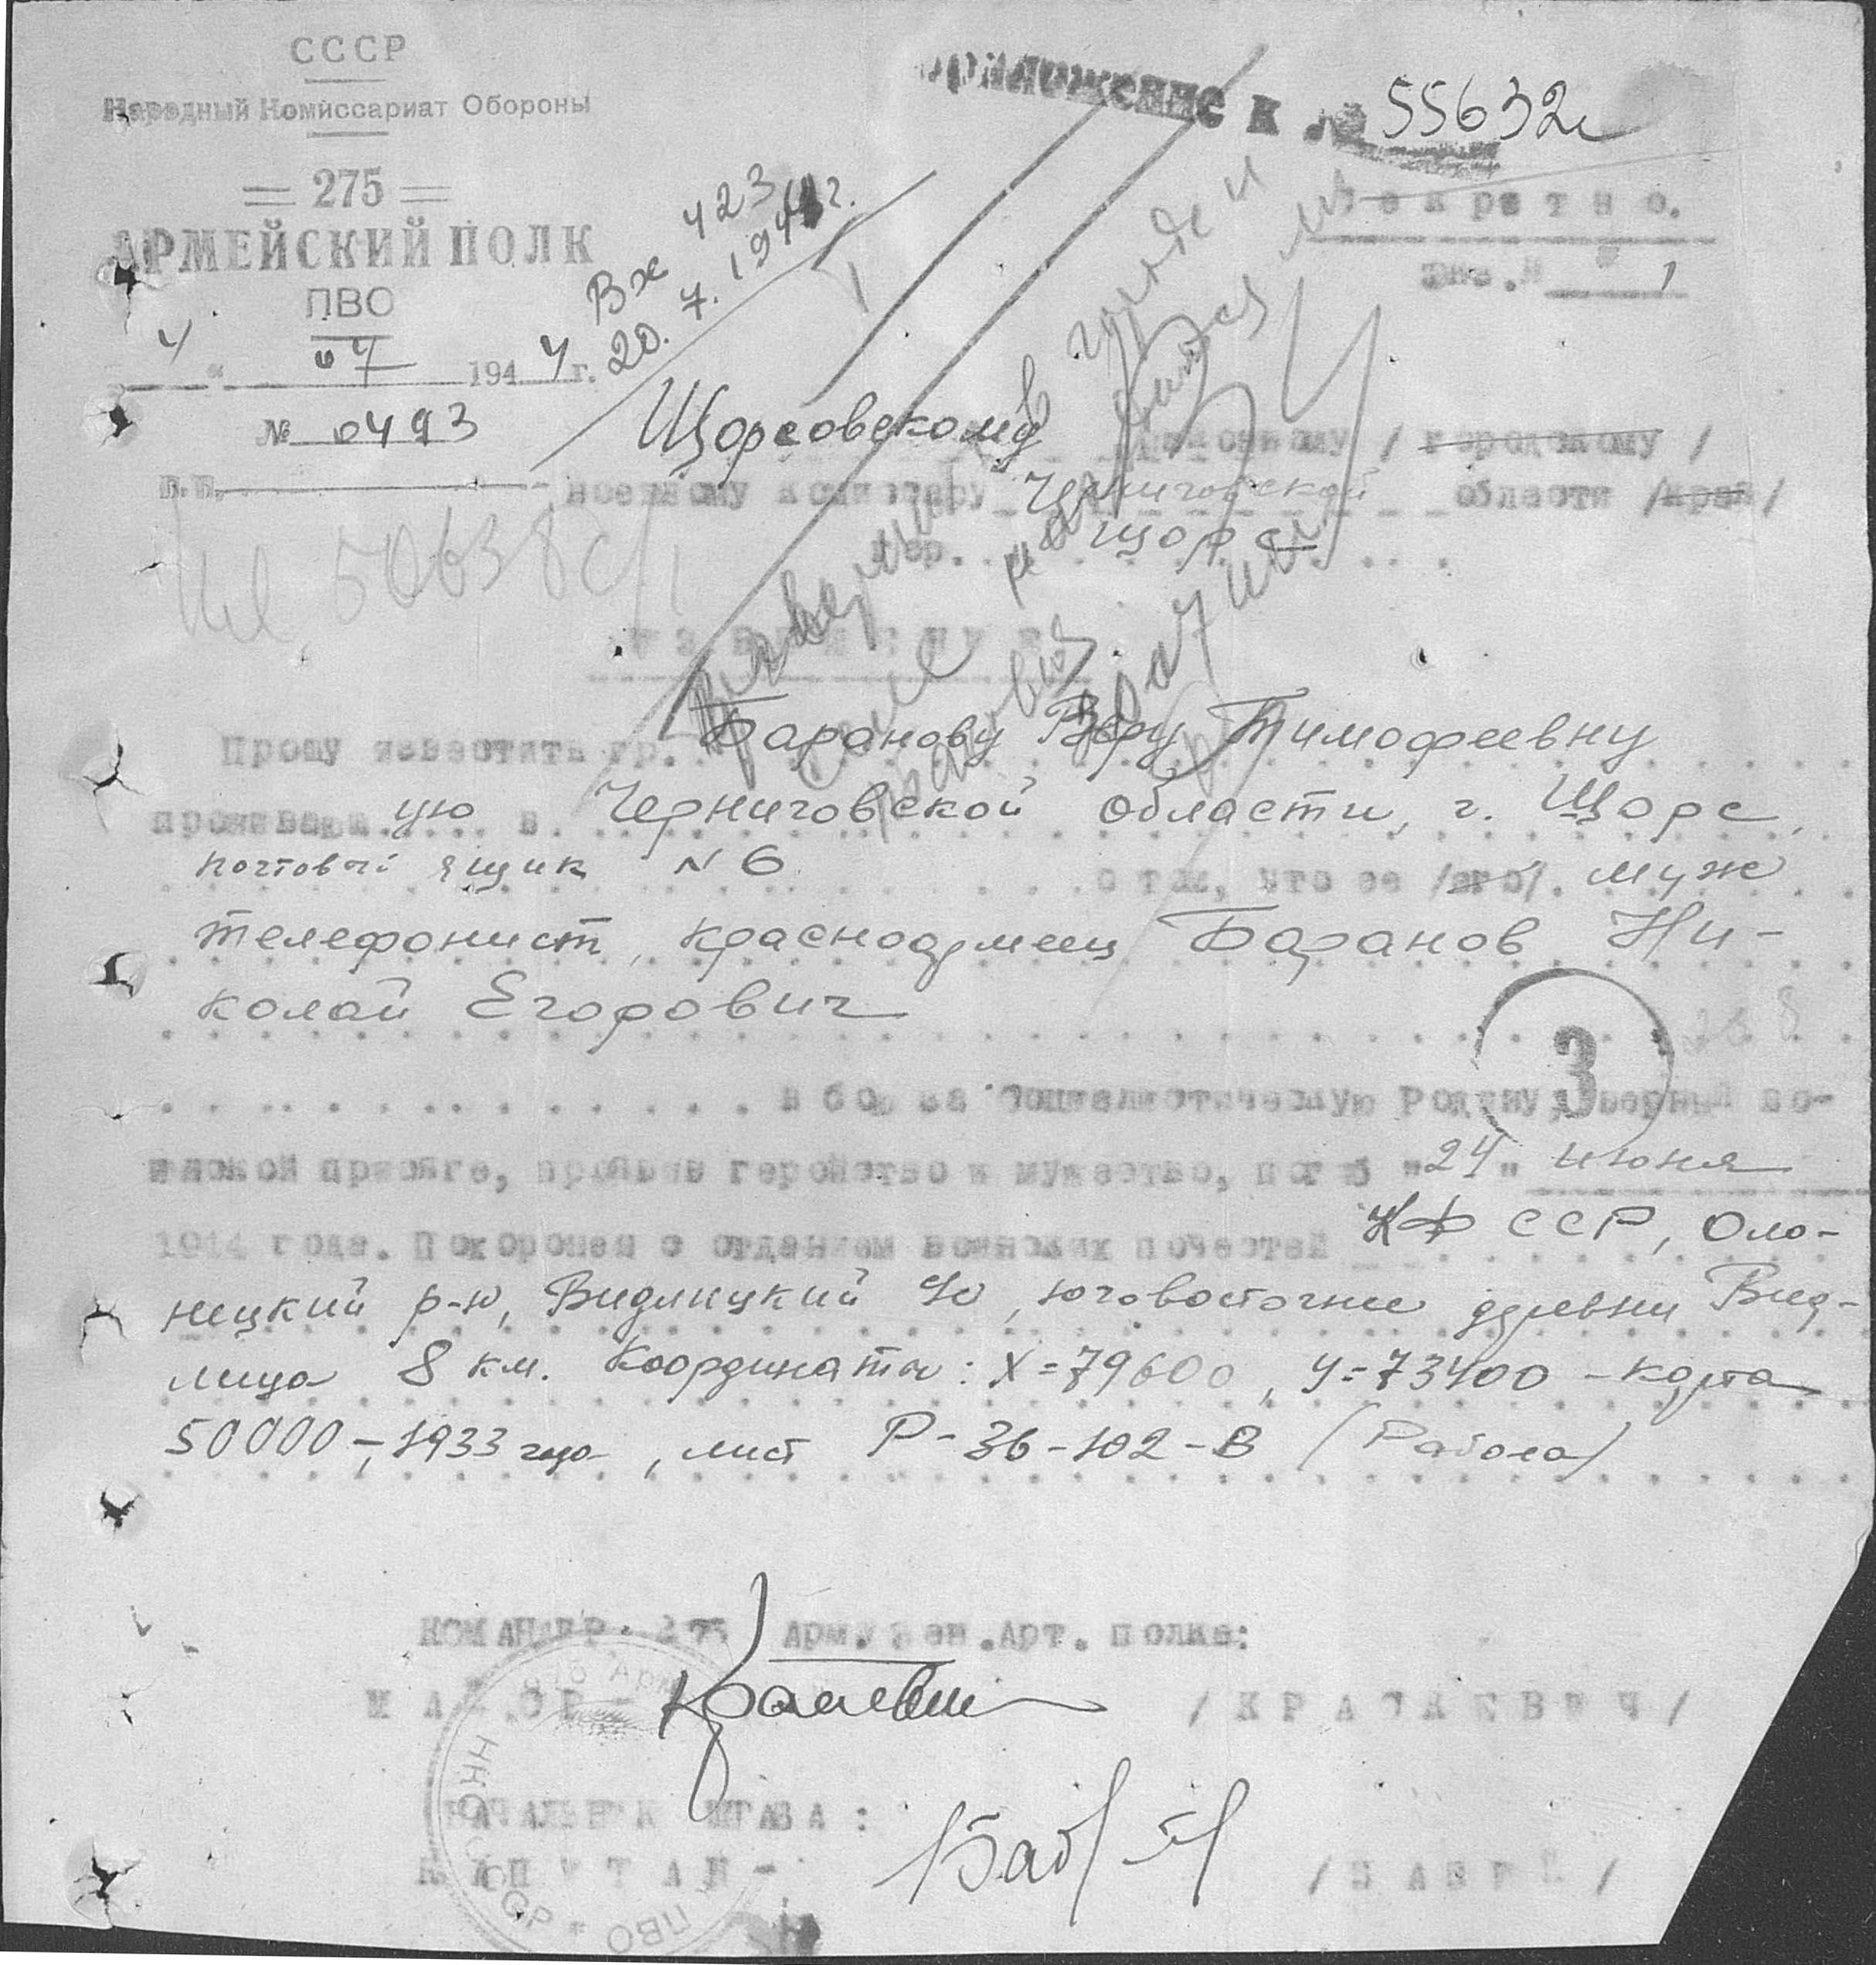 СССР
Народный Комиссариат Обороны
= 275 =
АРМЕЙСКИЙ ПОЛК
ПВО
4 " 07 1944 г.
№ 0493
Приложение к № 55632
Вх 423
20. 7. 1944 г.
Секретно.
Экз. № 1
Щорсовскому районному / городскому /
военному комиссару Черниговской области /край/
гор. Щорс
ИЗВЕЩЕНИЕ
Прошу известить гр. Баранову Веру Тимофеевну
проживающую в Черниговской области, г. Щорс,
почтовый ящик N 6 о том, что ее /его/ муж
телефонист, красноармеец Баранов Ни-
колай Егорович
3
в бою за Социалистическую Родину, верный во-
инской присяге, проявив геройство и мужество, погиб "24" июня
1944 года. Похоронен с отданием воинских почестей КФ ССР, Оло-
нецкий р-н, Видлицкий с/с, юговосточнее деревни Вид-
лица 8 км. Координаты: X=79600, y=73400 - карта
50000 -, 1933 года, лист Р-36-102-В (Рабола)
КОМАНДИР 275 Арм. Зен. Арт. полка:
МАЙОР - /КРАТКЕВИЧ/
НАЧАЛЬНИК ШТАБА:
КАПИТАН -